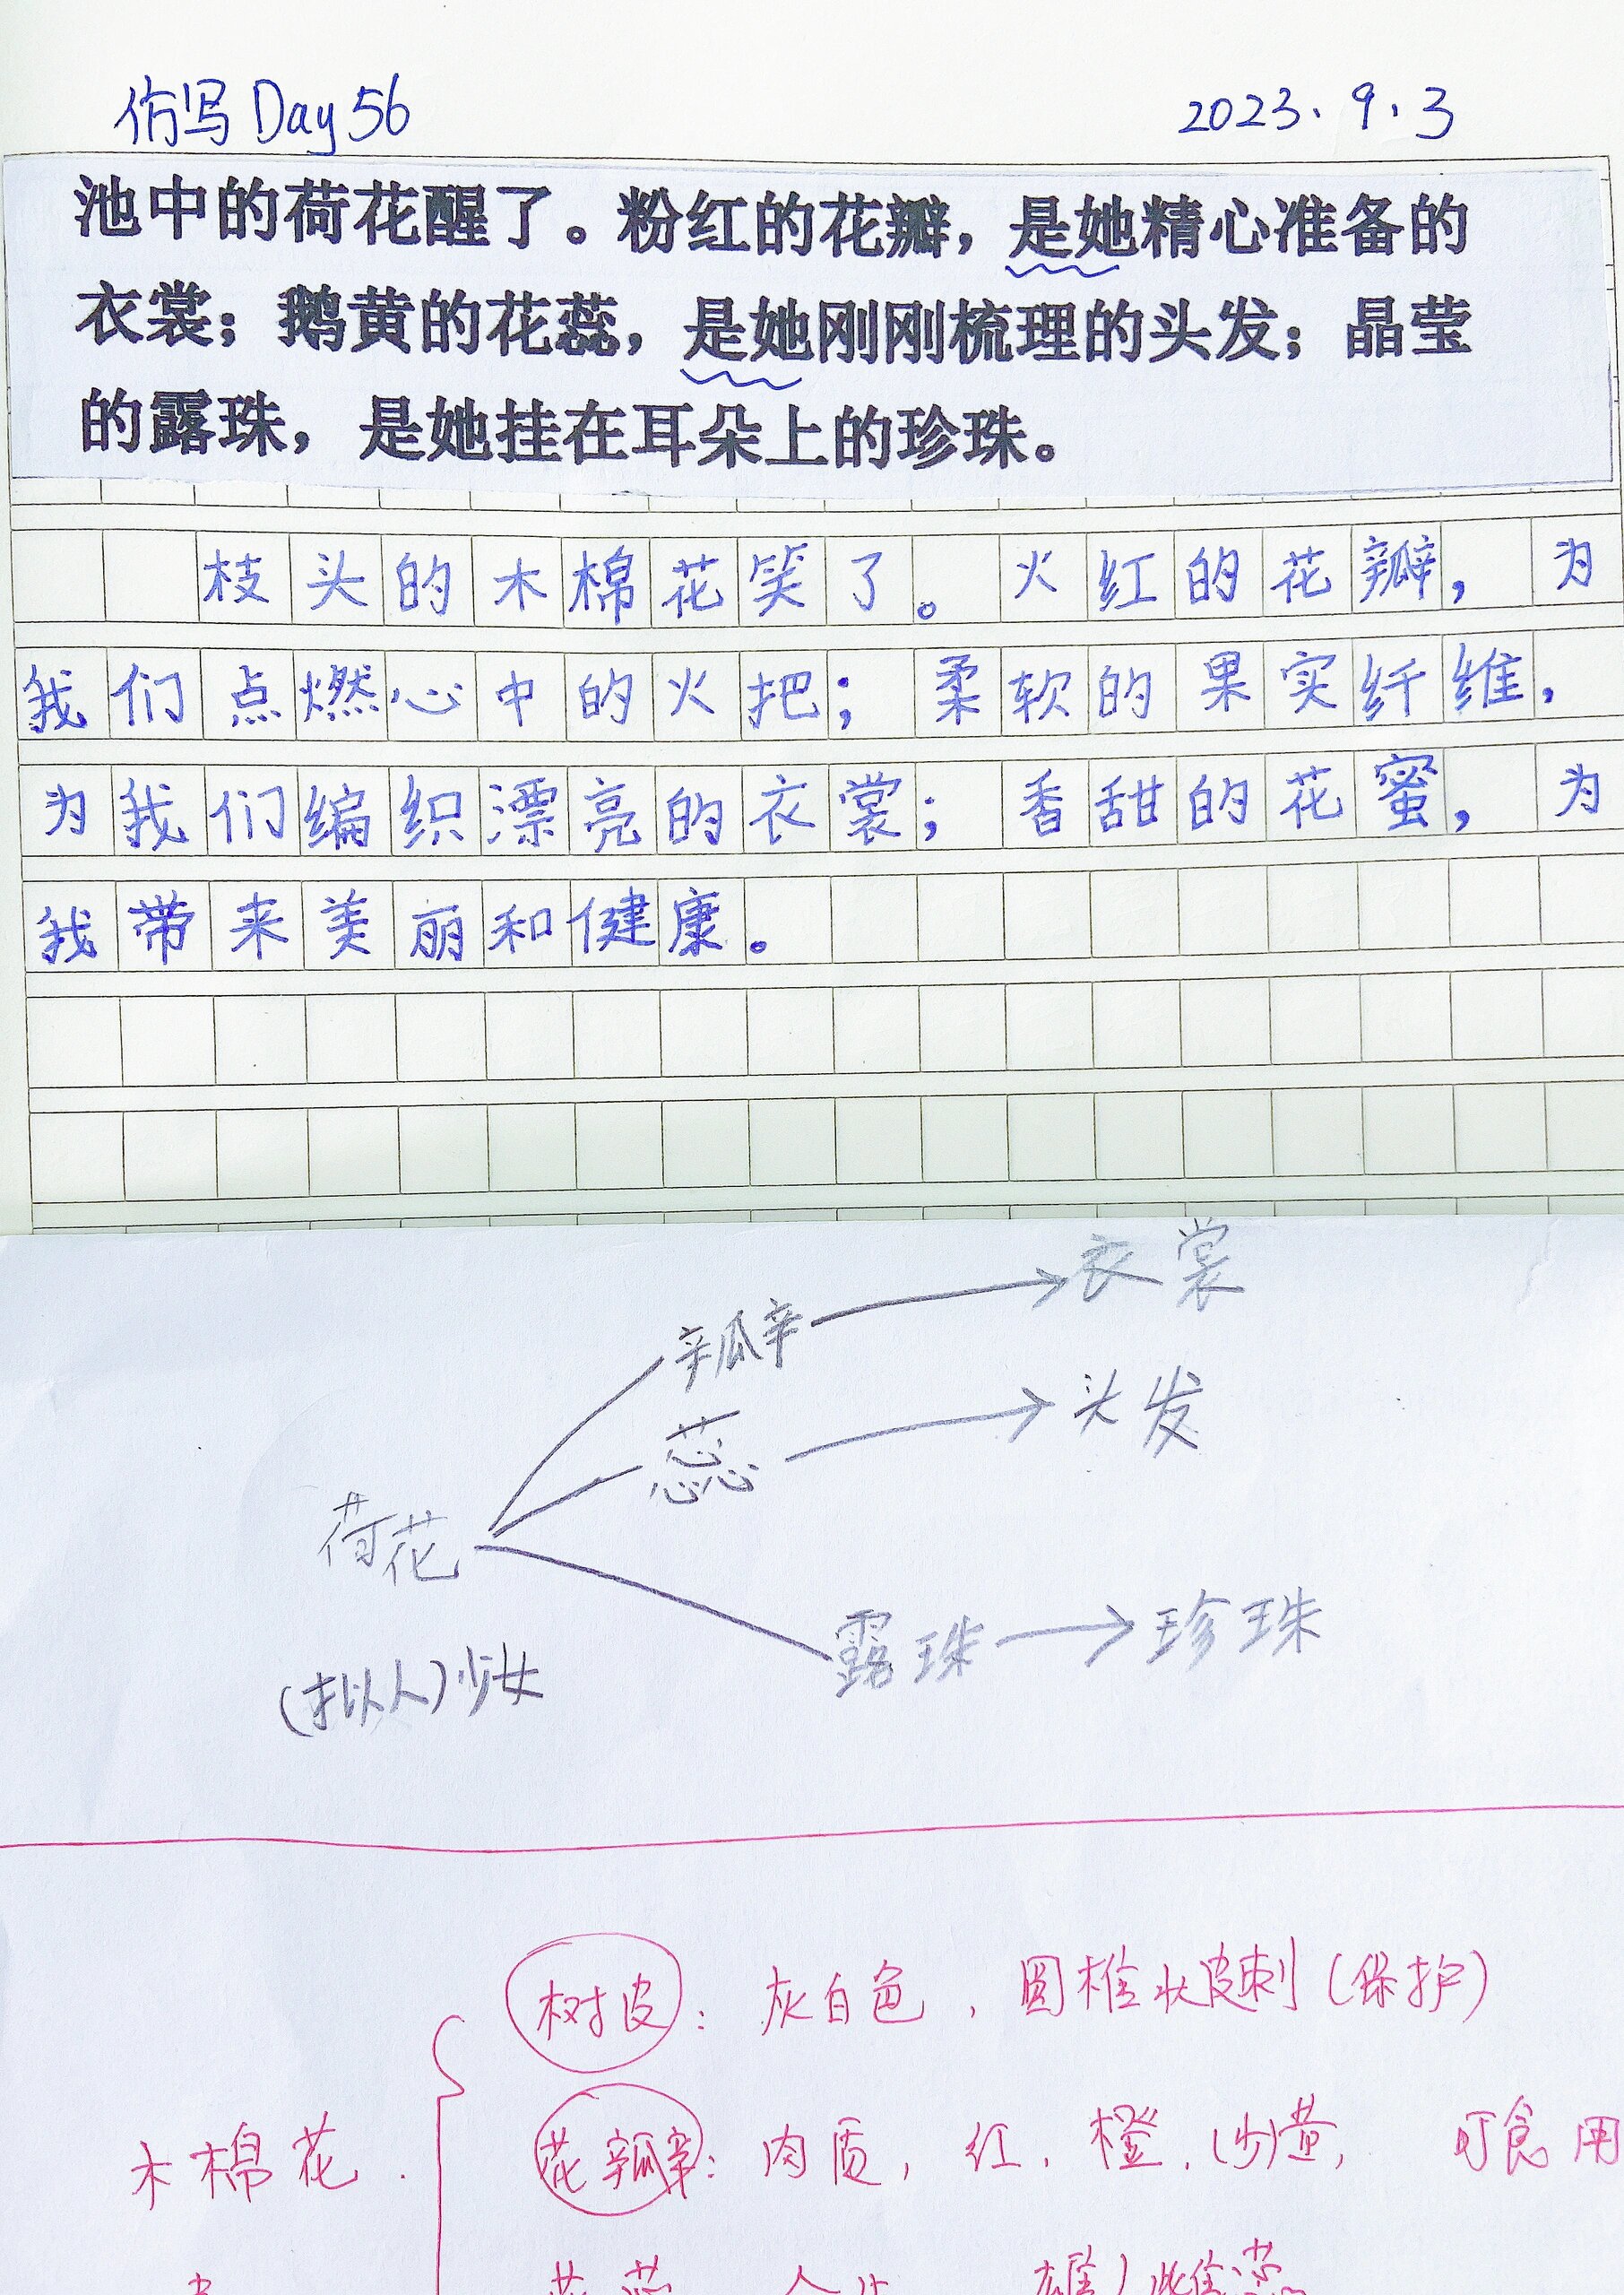 仿写 Day 56 2023.9.3
池中的荷花醒了。粉红的花瓣，是她精心准备的
衣裳；鹅黄的花蕊，是她刚刚梳理的头发；晶莹
的露珠，是她挂在耳朵上的珍珠。
枝头的木棉花笑了。火红的花瓣，为
我们点燃心中的火把；柔软的果实纤维，
为我们编织漂亮的衣裳；香甜的花蜜，为
我带来美丽和健康。
瓣 → 衣裳
蕊 → 头发
荷花
露珠 → 珍珠
(拟人)少女
树皮：灰白色，圆椎状皮刺(保护)
木棉花
花瓣：肉质，红，橙，(少)黄，可食用
花蕊